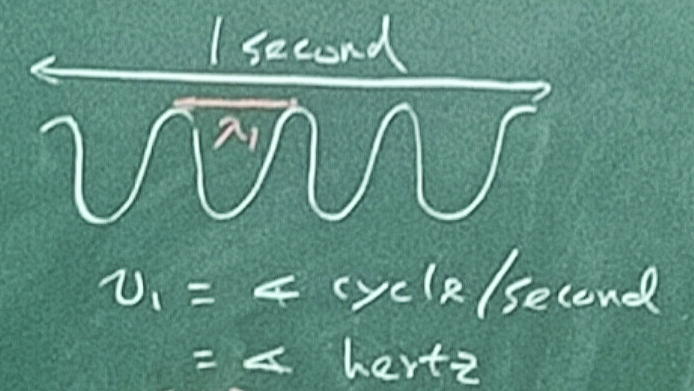 1 second
λ₁
ν₁ = 4 cycle/second
= 4 hertz